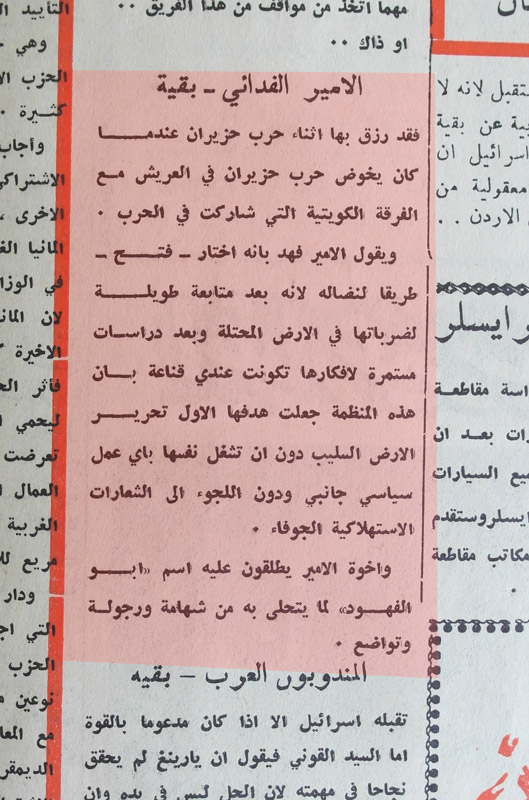 مهما اتخذ من مواقف من هذا الفريق ٠٠
او ذاك ٠٠
الامير الفدائي ـ بقية
فقد رزق بها اثناء حرب حزيران عندمـــــا
كان يخوض حرب حزيران في العريش مـع
الفرقة الكويتية التي شاركت في الحرب ٠
ويقول الامير فهد بانه اختار ـ فتـــح ـ
طريقا لنضاله لانه بعد متابعة طويلـــــة
لضرباتها في الارض المحتلة وبعد دراســات
مستمرة لافكارها تكونت عندي قناعة بــان
هذه المنظمة جعلت هدفها الاول تحريـــــر
الارض السليب دون ان تشغل نفسها باي عمل
سياسي جانبي ودون اللجوء الى الشعارات
الاستهلاكية الجوفاء ٠
واخوة الامير يطلقون عليه اسم «ابـــو
الفهــود» لما يتحلى به من شهامة ورجولـة
وتواضع ٠
المندوبون العرب ـ بقيه
تقبله اسرائيل الا اذا كان مدعوما بالقوة
اما السيد القوني فيقول ان يارينغ لم يحقق
نجاحا في مهمته لان الحل ليس في يده وان
ستقبل لانه لا
عن بقية
اسرائيل ان
معقولية من
الاردن . .
رايسلر
اسة مقاطعـة
رات بعـد ان
يع السيارات
ايسلر وستقدم
مكاتب مقاطعة
التأييد
وهي
الحزب
كثيرة ٠
وأجاب
الاشتراكي
الاخرى ،
المانيا
في الوزا
لان
الاخيرة
فأثر
ليحمي
تعرضت
العمال
الغربية
مريع
ودار
التي
الحزب
نوعين
مع
الديمقر